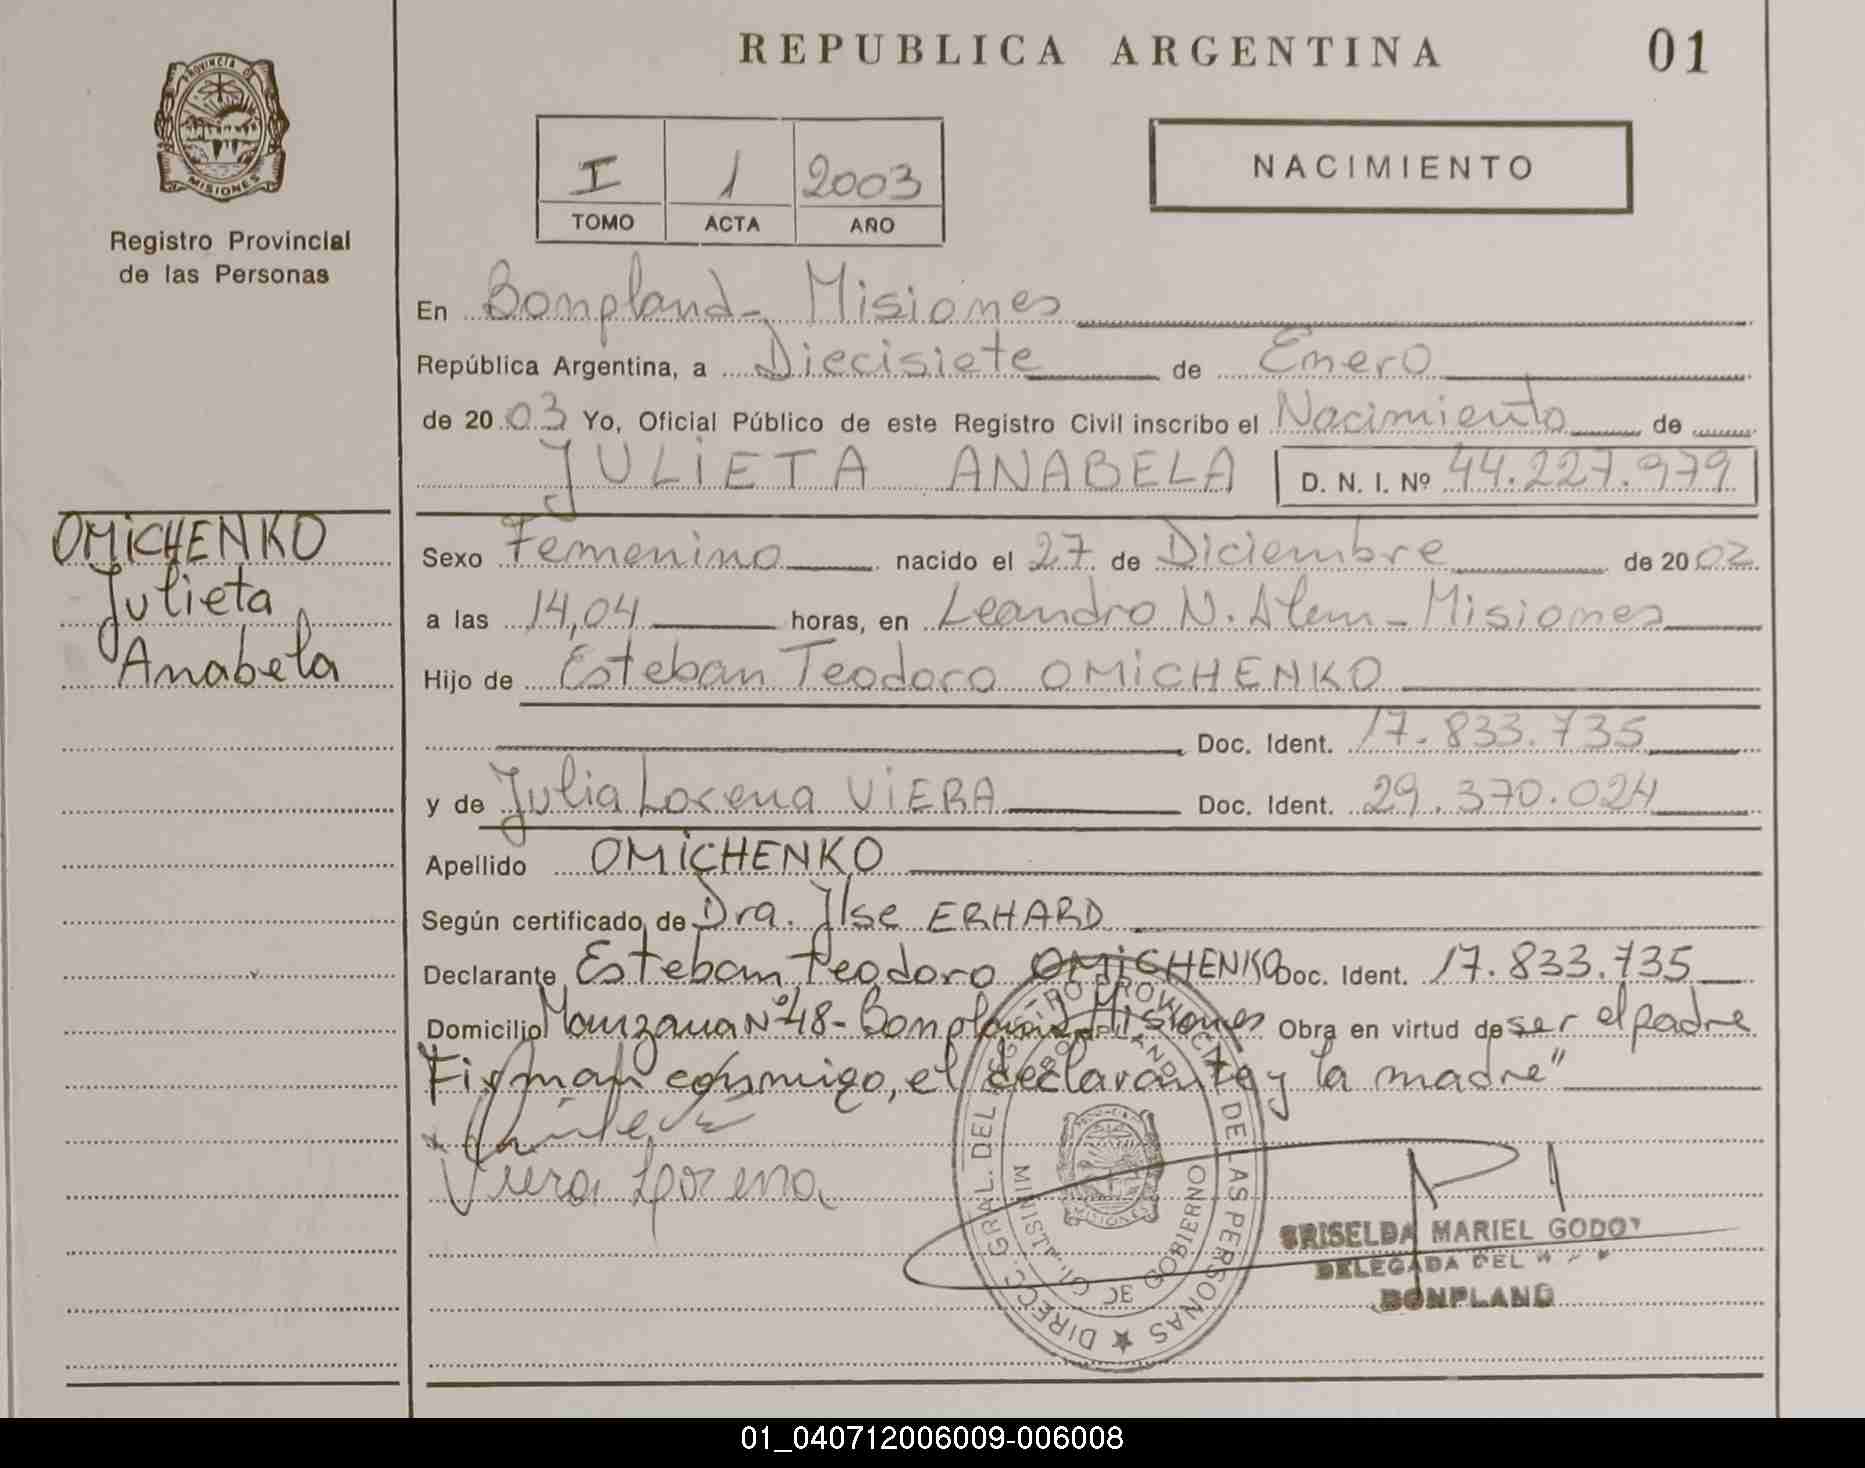 REPUBLICA ARGENTINA
01
PROVINCIA DE
MISIONES
Registro Provincial
de las Personas
I 1 2003
TOMO ACTA AÑO
NACIMIENTO
En Bonpland - Misiones
República Argentina, a Diecisiete de Enero
de 2003 Yo, Oficial Público de este Registro Civil inscribo el Nacimiento de
JULIETA ANABELA D. N. I. Nº 44.227.979
OMICHENKO
Julieta
Anabela
Sexo Femenino nacido el 27 de Diciembre de 2002
a las 14,04 horas, en Leandro N. Alem - Misiones
Hijo de Esteban Teodoro OMICHENKO
Doc. Ident. 17.833.735
y de Julia Lorena VIERA Doc. Ident. 29.370.024
Apellido OMICHENKO
Según certificado de Dra. Ilse ERHARD
Declarante Esteban Teodoro OMICHENKO Doc. Ident. 17.833.735
Domicilio Manzana Nº 48 - Bonpland Misiones Obra en virtud de ser el padre
Firman conmigo, el declarante y la madre"
Viera Lorena
DIRECC. GRAL. DEL REGISTRO PROVINCIAL DE LAS PERSONAS
BONPLAND
DE GOBIERNO
MISIONES
GRISELDA MARIEL GODOY
DELEGADA DEL
BONPLAND
01_040712006009-006008